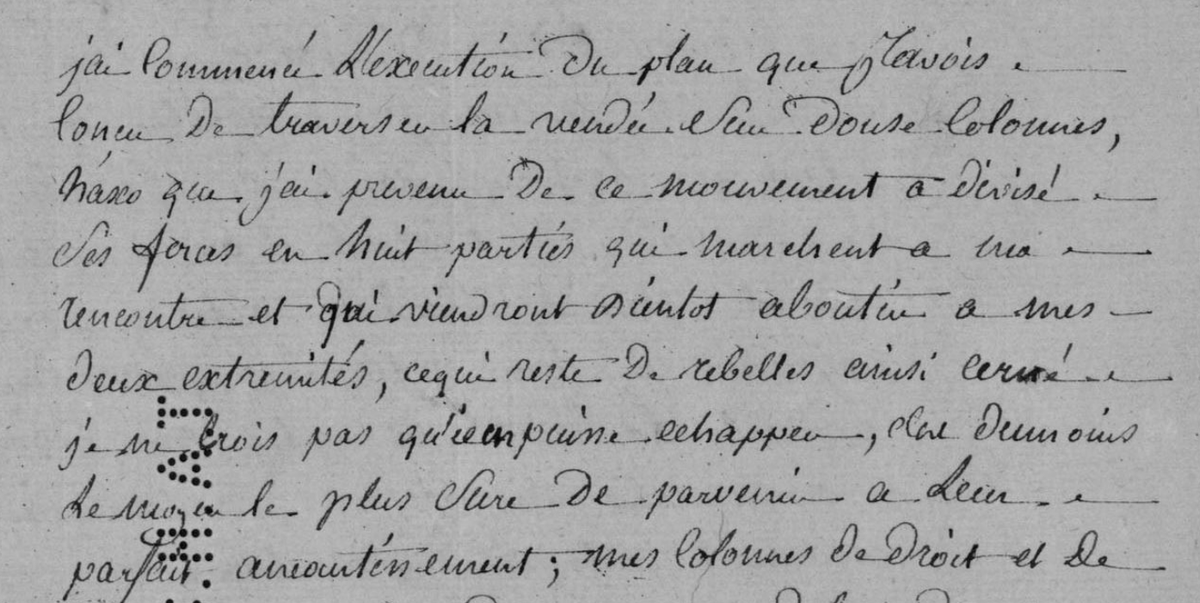 jai commencé L'execution du plan que j'Lavois
concu De traverser la vendée Sur douse Colonnes,
háxo que j'ai prevenu De ce mouvement a divisé
Ses forces en huit parties qui marchent a ma
rencontre et qui viendront bientot aboutir a mes
deux extremités, cequi reste De rebelles ainsi cerné
je ne crois pas qu'il en puisse echapper, c'est dumoins
Le moyen le plus Sure De parvenir a Leur
parfait aneantissement; mes Colonnes de droit et de